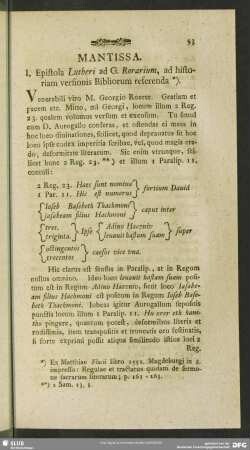 53
MANTISSA.
I. Epistola Lutheri ad G. Rorarium, ad histo-
riam versionis Bibliorum referenda *).
Venerabili viro M. Georgio Rorer. Gratiam et
pacem etc. Mitto, mi Georgi, locum illum 2 Reg.
23. qualem volumus versum et excusum. Tu simul
cum D. Aurogallo conferas, et ostendas ei mea in
hoc loco divinationes, scilicet, quod depravatus sit hoc
loco ipse codex imperitia scribae, vel, quod magis cre-
do, deformitate literarum. Sic enim utrumque, sci-
licet hunc 2 Reg. 23. **) et illum 1 Paralip. 11.
contuli:
2 Reg. 23. Haec sunt nomina } fortium David
1 Par. 11. Hic est numerus
{ Iaseb Baseheth Thachmoni } caput inter
{ Iasabeam filius Hachmoni
{ tres, } Ipse { Adino Haezniv } super
{ triginta. { levavit hastam suam
{ octingentos } caesos vice una.
{ trecentos
Hic clarus est sensus in Paralip., at in Regum
nullus omnino. Ideo loco levavit hastam suam posi-
tum est in Regum Adino Haezniv, sicut loco Iasabe-
am filius Hachmoni est positum in Regum Iaseb Base-
beth Thachmoni. Iubeas igitur Aurogallum sepositis
punctis locum illum 1 Paralip. 11. Hu orer eth hani-
tho pingere, quantum potest, deformibus literis et
rudissimis, item transpositis et truncatis ero sententia,
si forte exprimi possit aliqua similitudo istius loci 2
Reg.
*) Ex Matthiae Flacii libro 1551. Magdeburgi in 8.
impresso: Regulae et tractatus quidam de sermo-
ne sacrarum literarum; p. 161 - 163.
**) 2 Sam. 23, 8.
SLUB